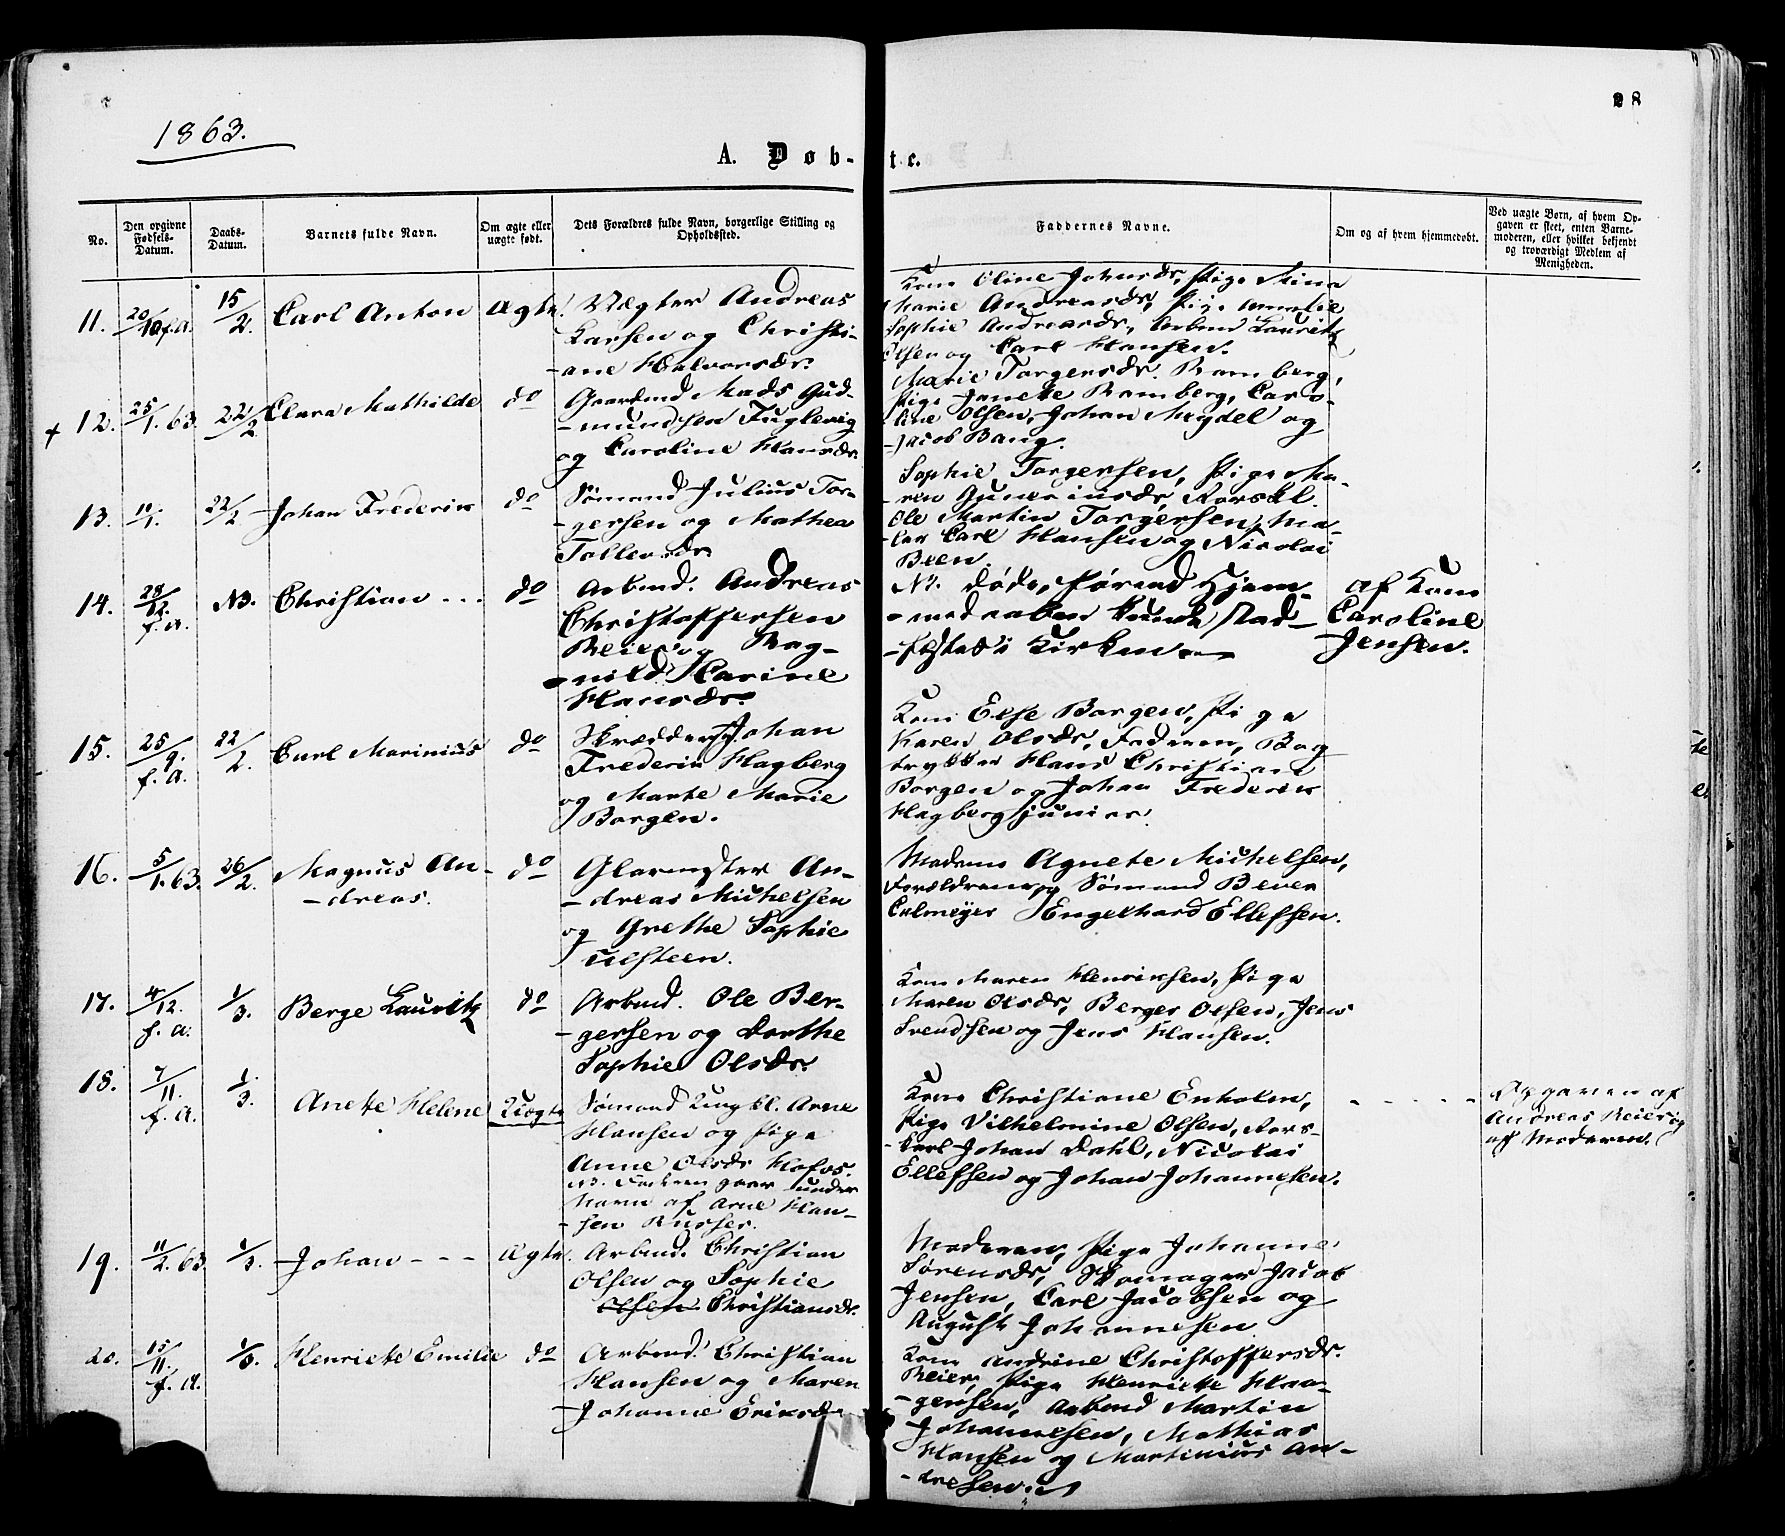 1863.
28
A. Døb-te.
No.
Den opgivne Fødsels-Datum.
Daabs-Datum.
Barnets fulde Navn.
Om ægte eller uægte født.
Dets Forældres fulde Navn, borgerlige Stilling og Opholdssted.
Faddernes Navne.
Om og af hvem hjemmedøbt.
Ved uægte Børn, af hvem Opgaven er skeet, enten Barnemoderen, eller hvilket bekjendt og troværdigt Medlem af Menigheden.
11. 20/10 f.a. 15/2. Carl Anton Ægte.
Vægter Andreas
Larsen og Christi-
-ane Halvorsdr.
Kone Oline Johnsdr, Pige Mina
Marie Andreasdr, Pige Amalie
Sophie Andreasdr, Arbmd Lauritz
Olsen og Carl Hansen.
+ 12. 25/1. 63. 22/2 Clara Mathilde do
Gaardmd Mads Gud-
-mundsen Fuglevig
og Caroline Hansdr.
Marie Torgersdr. Ramberg,
Pige Janette Ramberg, Caro-
-line Olsen, Johan Mygdel og
Jacob Bang.
13. 11/1. 22/2 Johan Frederik do
Sømand Julius Tor-
-gersen og Mathea
Tollevsdr
Sophie Torgersen, Pige Ma-
-ren Gunerinsdr, Korskl.
Ole Martin Torgersen, Ma-
-ler Carl Hansen og Nicolai
Been.
14. 28/12. f.a. NB. Christian - - - do
Arbmd. Andreas
Christoffersen
Reier og Rag-
-nild Karine
Hansdr.
NB. døde, førend Hjem-
-medaaben kunde stad-
-fæstes i Kirken.
af Kone
Caroline
Jensen.
15. 25/9. f.a. 22/2. Carl Marinius do
Skrædder Johan
Frederik Hagberg
og Marte Marie
Borgen.
Kone Else Borgen, Pige
Karen Olsdr, Faderen, Bog
trykker Hans Christian
Borgen og Johan Frederik
Hagberg junior.
16. 5/1. 63. 26/2. Magnus An-
-dreas. do
Glarmester An-
-dreas Michelsen
og Grethe Sophie
Ulsteen.
Madame Agnete Michelsen,
Forældrene, og Sømand Bever
Culmeyer Engelhard Ellefsen.
17. 4/12. f.a. 1/3. Berge Lauritz do
Arbmd. Ole Ber-
-gersen og Dorthe
Sophie Olsdr.
Kone Maren Henriksen, Pige
Maren Olsdr, Berger Olsen, Jens
Svendsen og Jens Hansen.
18. 7/11. f.a. 1/3. Anete Helene Uægte
Sømand Ungkl. Arne
Hansen og Pige
Anne Olsdr Hofos.
NB. Faderen gaar under
Navn af Arne Han-
-sen Russer.
Kone Christiane Enholm,
Pige Vilhelmine Olsen, Kors-
-karl Johan Dahl, Nicolai
Ellefsen og Johan Johannesen.
- - - - -
Opgaven af
Andreas Reier og
af Moderen.
19. 11/2. 63. 1/3. Johan - - - Ægte.
Arbmd. Christian
Olsen og Sophie
Olsen Christiansdr.
Moderen, Pige Johanne
Sørensdr, Skomager Jacob
Jensen, Carl Jacobsen og
August Johannesen
20. 15/11. f.a. 1/3. Henriette Emilie do
Arbmd. Christian
Hansen og Maren
Johanne Eriksdr
Kone Andrine Christoffersdr.
Reier, Pige Henriette Haa-
-gensen, Arbmd Martin
Johannesen, Mathias
Hansen og Martinius An-
-dresen.